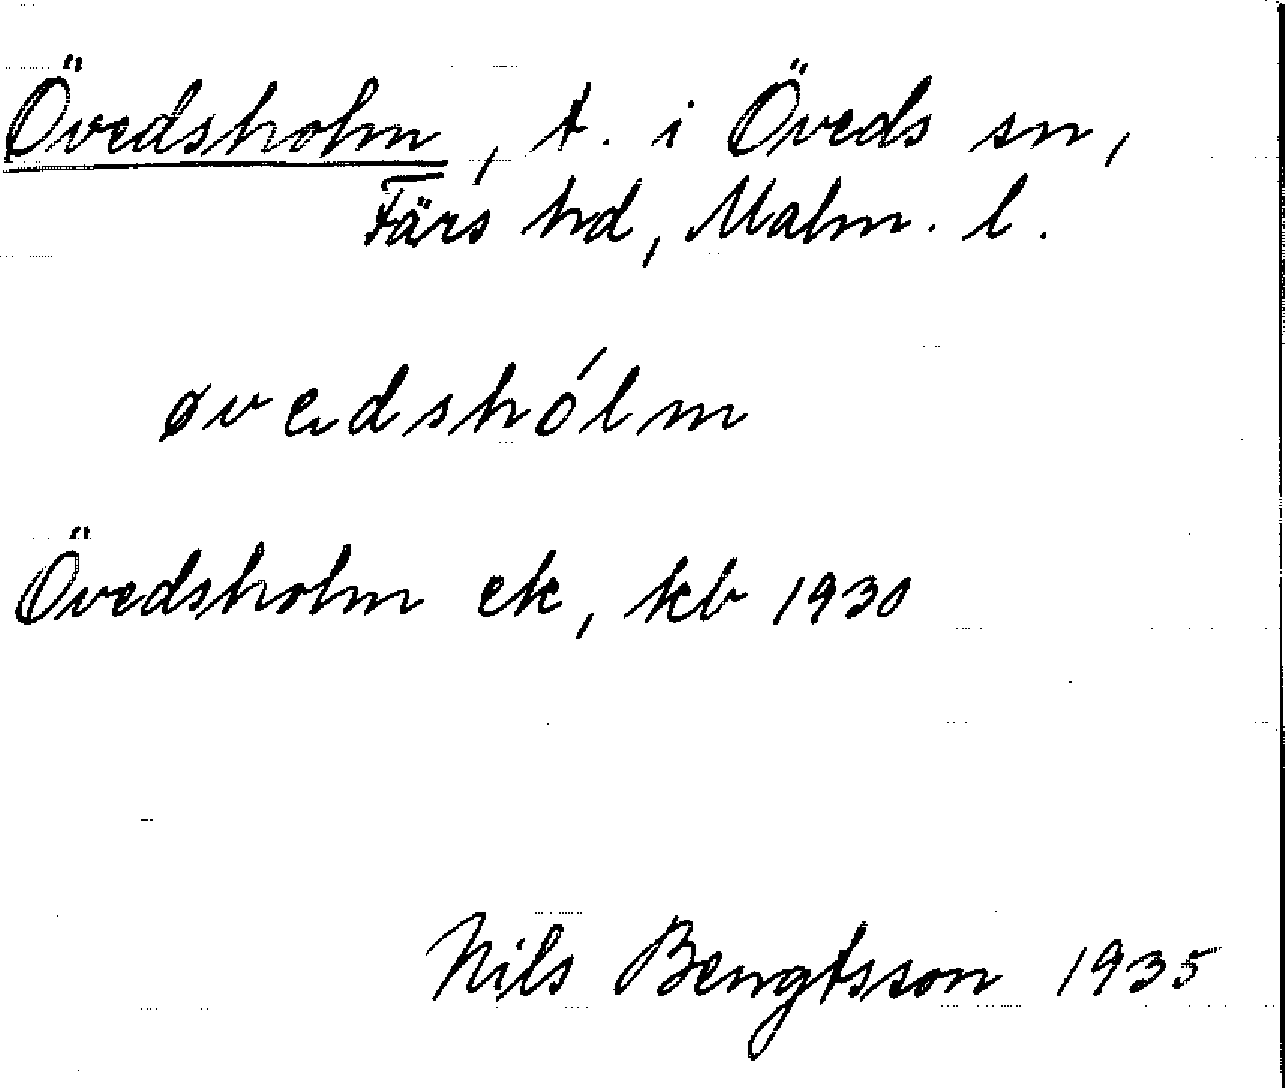 Övedsholm, t. i Öveds sn,
Färs hd, Malm. l.
øvedshólm
Övedsholm ek, kb 1930
Nils Bengtsson 1935